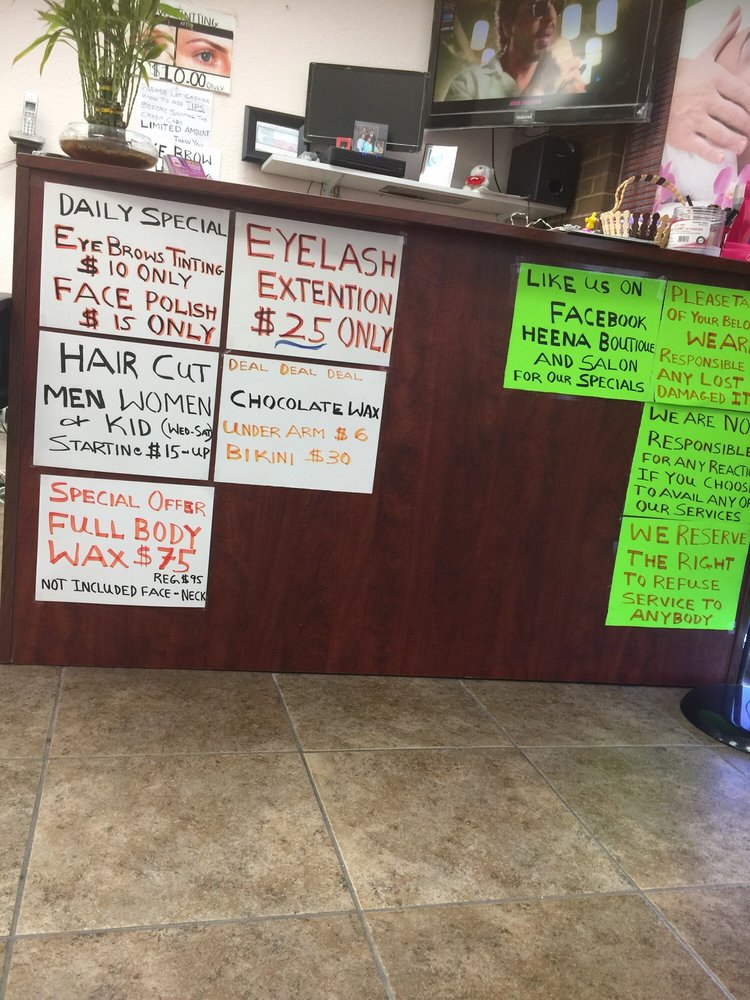 $10.00 ONLY
PLEASE LET CASHIER
KNOW TO ADD TIPS
BEFORE SWIPING THE
CREDIT CARD
LIMITED AMOUNT
THANK YOU
BROW
DAILY SPECIAL
EYE BROWS TINTING
$10 ONLY
FACE POLISH
$15 ONLY
EYELASH
EXTENTION
$25 ONLY
HAIR CUT
MEN WOMEN
or KID (WED-SAT)
STARTING $15-UP
DEAL DEAL DEAL
CHOCOLATE WAX
UNDER ARM $6
BIKINI $30
SPECIAL OFFER
FULL BODY
WAX $75
REG $95
NOT INCLUDED FACE-NECK
LIKE US ON
FACEBOOK
HEENA BOUTIQUE
AND SALON
FOR OUR SPECIALS
PLEASE TA
OF YOUR BELO
WE ARE
RESPONSIBLE
ANY LOST
DAMAGED IT
WE ARE NO
RESPONSIBLE
FOR ANY REACTI
IF YOU CHOOSE
TO AVAIL ANY O
OUR SERVICES
WE RESERVE
THE RIGHT
TO REFUSE
SERVICE TO
ANYBODY
SAMSUNG